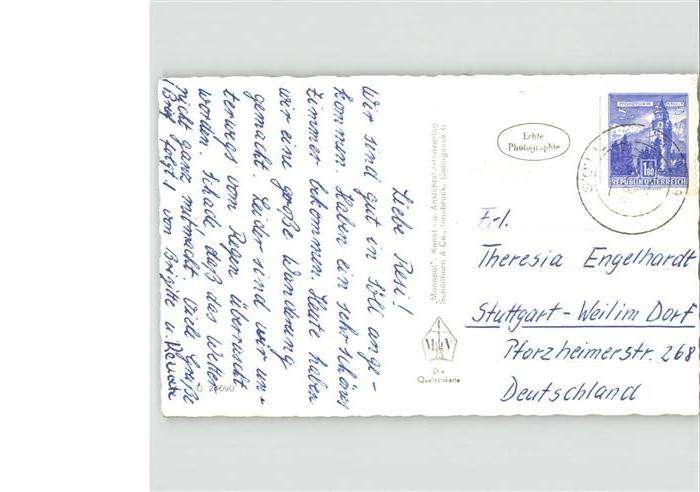 Liebe Resi!
Wir sind gut in Söll ange-
kommen. Haben ein sehr schönes
Zimmer bekommen. Heute haben
wir eine große Wanderung
gemacht. Leider sind wir un-
terwegs vom Regen überrascht
worden. Schade daß das Wetter
nicht ganz mitmacht. Viele Grüße
(Brief folgt) von Brigitte u. Renate
"Monopol", Kunst- u. Ansichtskartenverlag
Schöllhorn & Co., Innsbruck,
MKV
Die
Qualitätskarte
Echte
Photographie
REPUBLIK ÖSTERREICH
1.80
Frl.
Theresia Engelhardt
Stuttgart-Weilim Dorf
Pforzheimerstr. 268
Deutschland